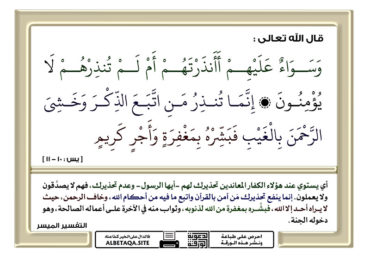 قال الله تعالى :
وَسَوَاءٌ عَلَيْهِمْ أَأَنذَرْتَهُمْ أَمْ لَمْ تُنذِرْهُمْ لَا
يُؤْمِنُونَ ۞ إِنَّمَا تُنذِرُ مَنِ اتَّبَعَ الذِّكْرَ وَخَشِيَ
الرَّحْمَنَ بِالْغَيْبِ فَبَشِّرْهُ بِمَغْفِرَةٍ وَأَجْرٍ كَرِيمٍ
[ يس : ١٠ - ١١ ]
أي يستوي عند هؤلاء الكفار المعاندين تحذيرك لهم -أيها الرسول- وعدم تحذيرك، فهم لا يصدّقون
ولا يعملون. إنما ينفع تحذيرك مَن آمن بالقرآن واتبع ما فيه من أحكام الله، وخاف الرحمن، حيث
لا يراه أحد إلا الله، فبشِّره بمغفرة من الله لذنوبه، وثواب منه في الآخرة على أعماله الصالحة، وهو
دخوله الجنة.
التفسير الميسر
احرص على طباعة
ونشر هذه الورقة
فالدال على الخير كفاعله
ALBETAQA.SITE